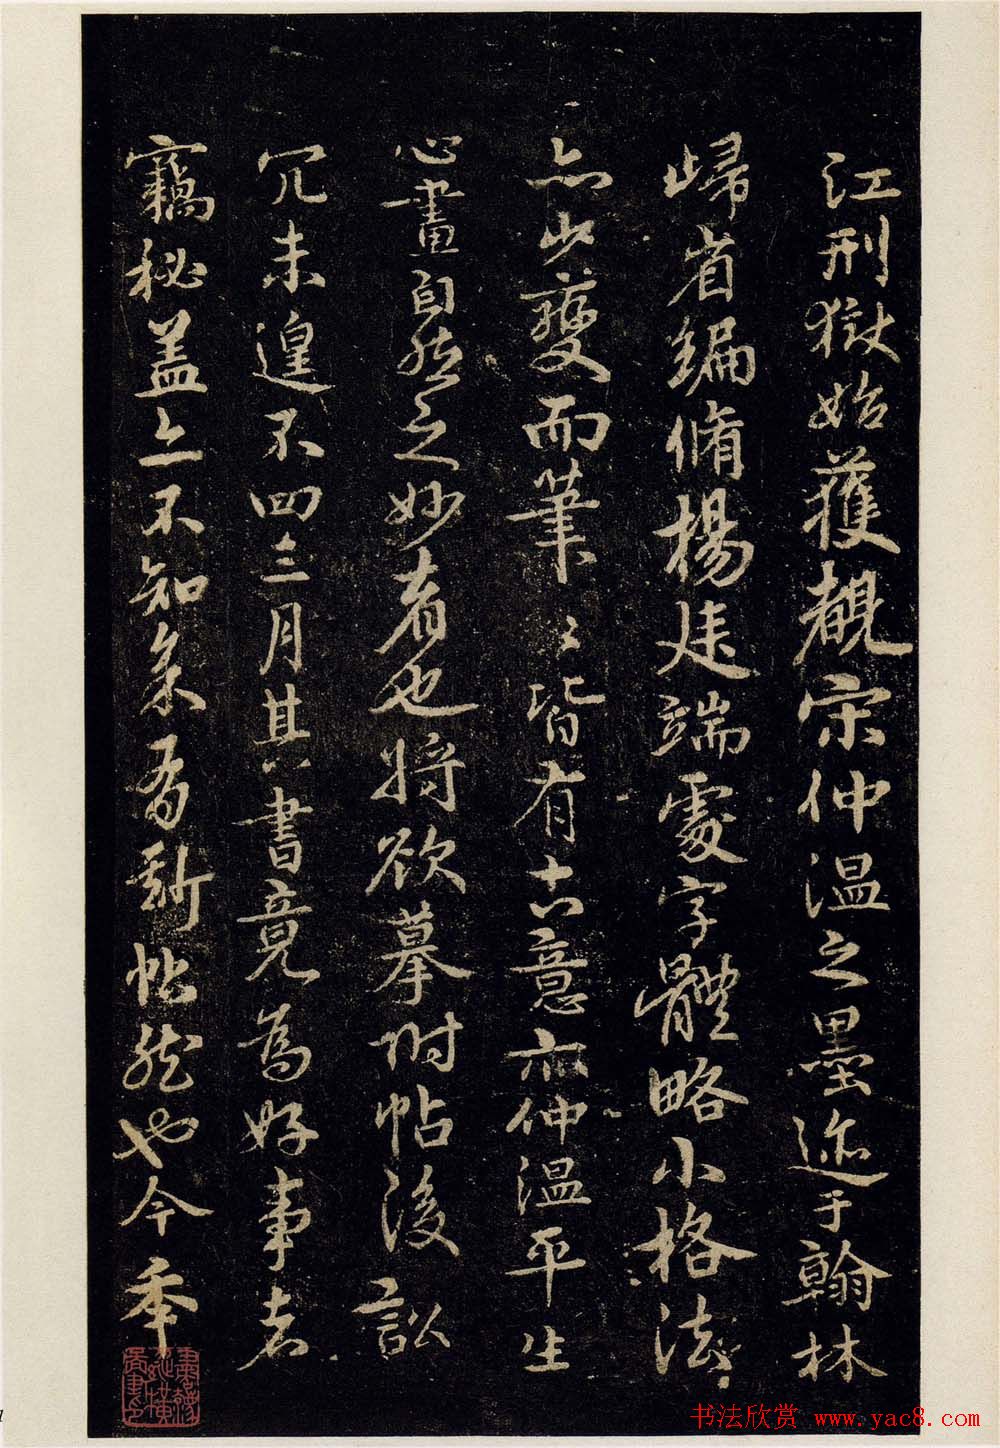 江刑獄始獲覩宋仲溫之墨迹于翰林
歸省編脩楊廷端處字體略小格法
亦少變而筆〻皆有古意亦仲溫平生
心畫自然之妙者也將欲摹附帖後訟
冗未遑不四三月其書竟為好事者
竊秘蓋亦不知余有斯帖然也今年
书法欣赏 www.yac8.com